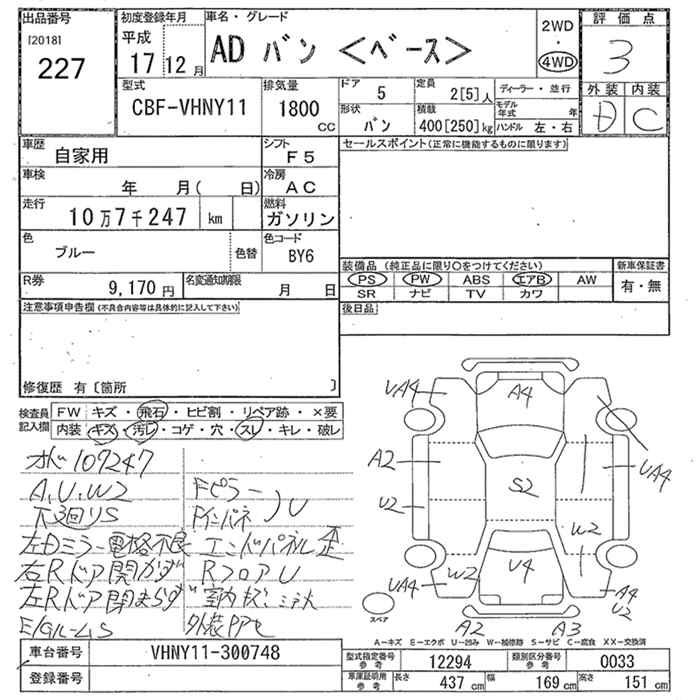 出品番号
[2018]
227
初度登録年月
平成
17 12 月
車名・グレード
AD バン <ベース>
2WD
4WD
評価点
3
外装 内装
D C
型式
CBF-VHNY11
排気量
1800 CC
ドア
5
形状
バン
定員
2[5]人
積載
400[250]kg
ディーラー・並行
モデル年式 年
ハンドル 左・右
車歴
自家用
シフト
F5
車検
年 月( 日)
冷房
AC
走行
10万7千247 km
燃料
ガソリン
色
ブルー
色替
色コード
BY6
R券
9,170円
名変通知期限
月 日
セールスポイント(正常に機能するものに限ります)
装備品(純正品に限り○をつけてください)
PS PW ABS エアB AW
SR ナビ TV カワ
新車保証書
有・無
後日品
注意事項申告欄(不具合内容等は具体的に記入して下さい)
修復歴 有〔箇所 〕
検査員記入欄
FW キズ・飛石・ヒビ割・リペア跡・×要
内装 キズ・汚レ・コゲ・穴・スレ・キレ・破レ
107247
A,U,W2
下3回リS
左Dミラー電格不良
右Rドア開かず
左Rドア閉まらず
Fピラー
Fインパネ
U
エンドパネル歪
RフロアU
UA4
A4
A2
U2
UA4
S2
UA4
W2
W2
U4
UA4
A4
U2
A2
A3
スペア
A-キズ E-エクボ U-凹み W-補修跡 S-サビ C-腐食 XX-交換済
車台番号
VHNY11-300748
登録番号
型式指定番号 参考
12294
類別区分番号 参考
0033
車庫証明用 参考
長さ 437 cm
幅 169 cm
高さ 151 cm